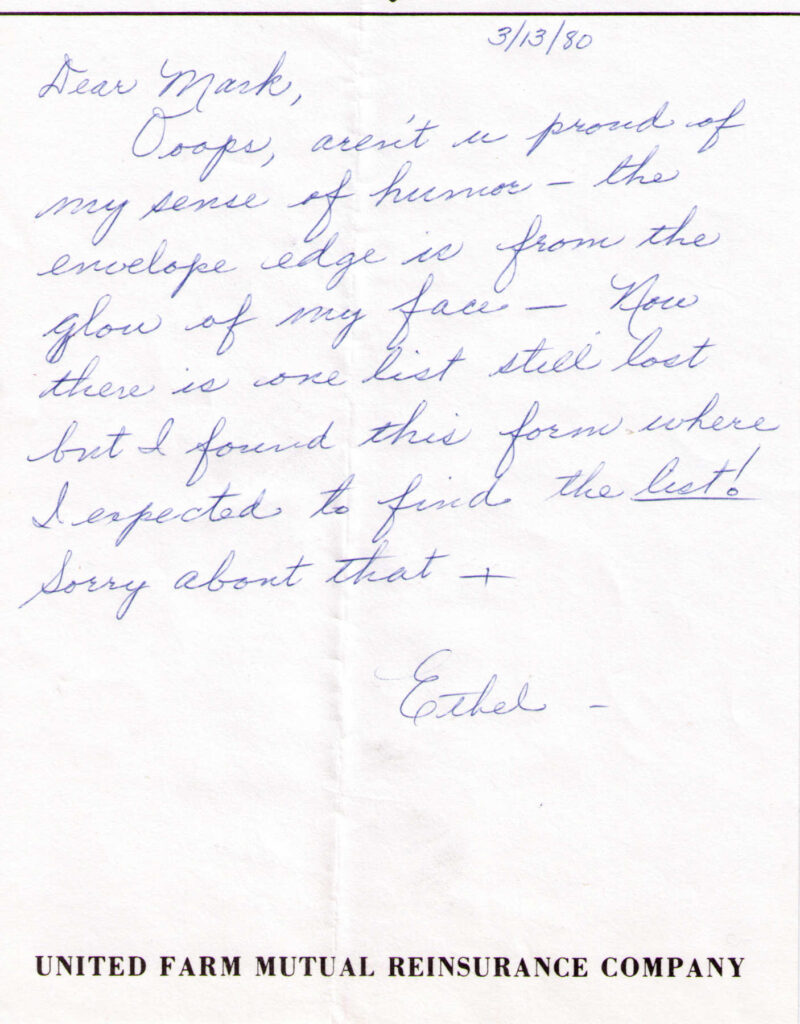 3/13/80
Dear Mark,
Ooops, aren't u proud of
my sense of humor – the
envelope edge is from the
glow of my face – Now
there is one list still lost
but I found this form where
I expected to find the list!
Sorry about that –
Ethel –
UNITED FARM MUTUAL REINSURANCE COMPANY